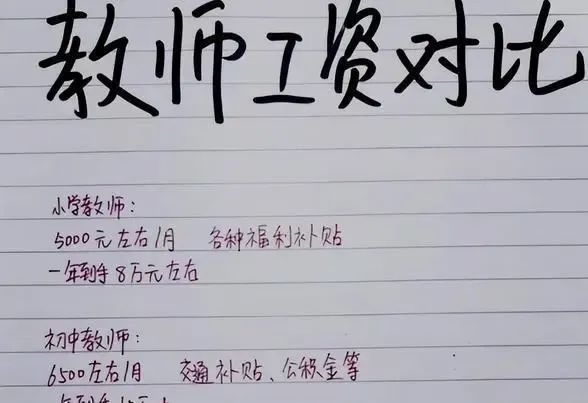 教师工资对比
小学教师:
5000元左右/月 各种福利补贴
一年到手8万元左右
初中教师:
6500左右/月 交通补贴、公积金等